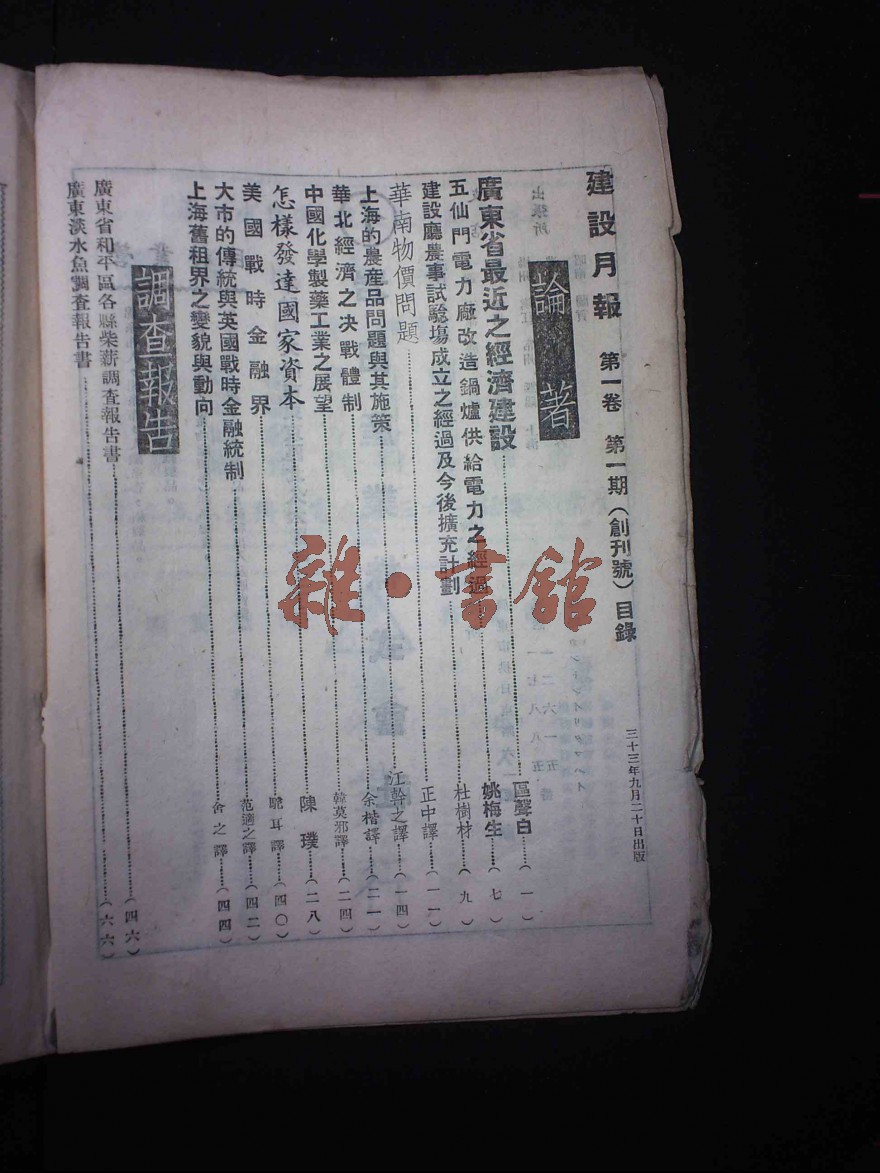 建設月報 第一卷 第一期(創刊號)目錄
三十三年九月二十日出版
論著
廣東省最近之經濟建設……區聲白……(一)
五仙門電力廠改造鍋爐供給電力之經過……姚梅生……(七)
建設廳農事試驗塲成立之經過及今後擴充計劃……杜樹材……(九)
華南物價問題……正中譯……(一一)
上海的農産品問題與其施策……江幹之譯……(一四)
華北經濟之决戰體制……余楷譯……(二一)
中國化學製藥工業之展望……韓莫邪譯……(二四)
怎樣發達國家資本……陳璞……(二八)
美國戰時金融界……耳譯……(四〇)
大市的傳統與英國戰時金融統制……范適之譯……(四二)
上海舊租界之變貌與動向……舍之譯……(四四)
調查報告
廣東省和平區各縣柴薪調查報告書……(四六)
廣東淡水魚調查報告書……(六六)
雜·書館